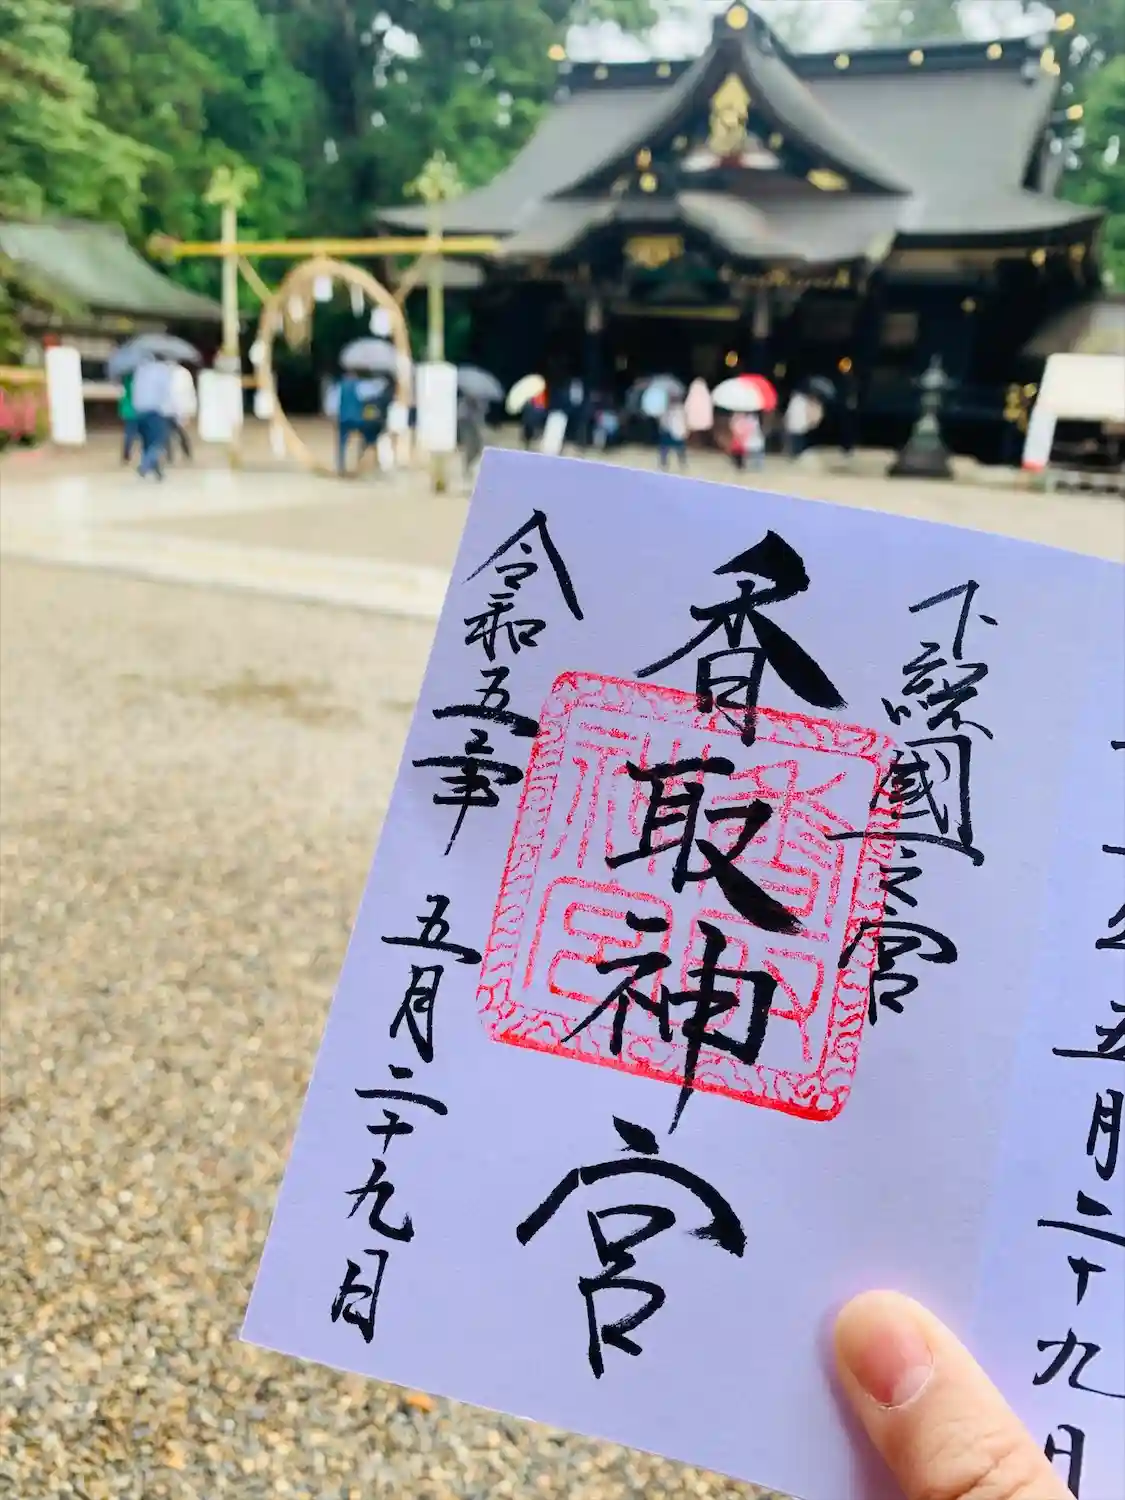 下総國一之宮
香取神宮
令和五年 五月二十九日
五月二十九日